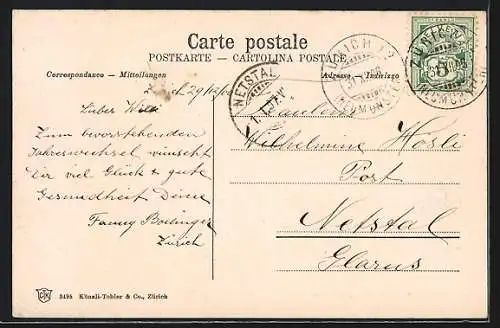 Carte postale
POSTKARTE - CARTOLINA POSTALE
Correspondance - Mitteilungen
Adresse - Indirizzo
NETSTAL
ZÜRICH 12
(NEUMÜNSTER)
5
Zürich 29/12/
Lieber Willi
Zum bevorstehenden
Jahreswechsel wünscht
Dir viel Glück & gute
Gesundheit Deine
Fanny
Zürich
Fräulein
Wilhelmine Hösli
Post
Netstal
Glarus
3495 Künzli-Tobler & Co., Zürich